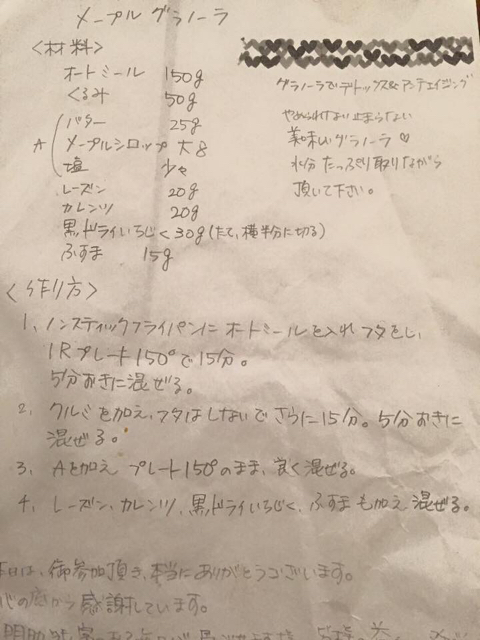 メープルグラノーラ
<材料>
オートミール 150g
くるみ 50g
A
バター 25g
メープルシロップ 大8
塩 少々
レーズン 20g
カレンツ 20g
黒ドライいちじく 30g (たて、横半分に切る)
ふすま 15g
グラノーラでデトックス&アンチエイジング
やめられない止まらない
美味しいグラノーラ♡
水分たっぷり取りながら
頂いて下さい。
<作り方>
1、ノンスティックフライパンにオートミールを入れフタをし、
IRプレート150°で15分。
5分おきに混ぜる。
2、クルミを加え、フタはしないでさらに15分。5分おきに
混ぜる。
3、Aを加えプレート150°のまま、良く混ぜる。
4、レーズン、カレンツ、黒ドライいちじく、ふすまも加え混ぜる。
本日は、御参加頂き、本当にありがとうございます。
心の底から感謝しています。